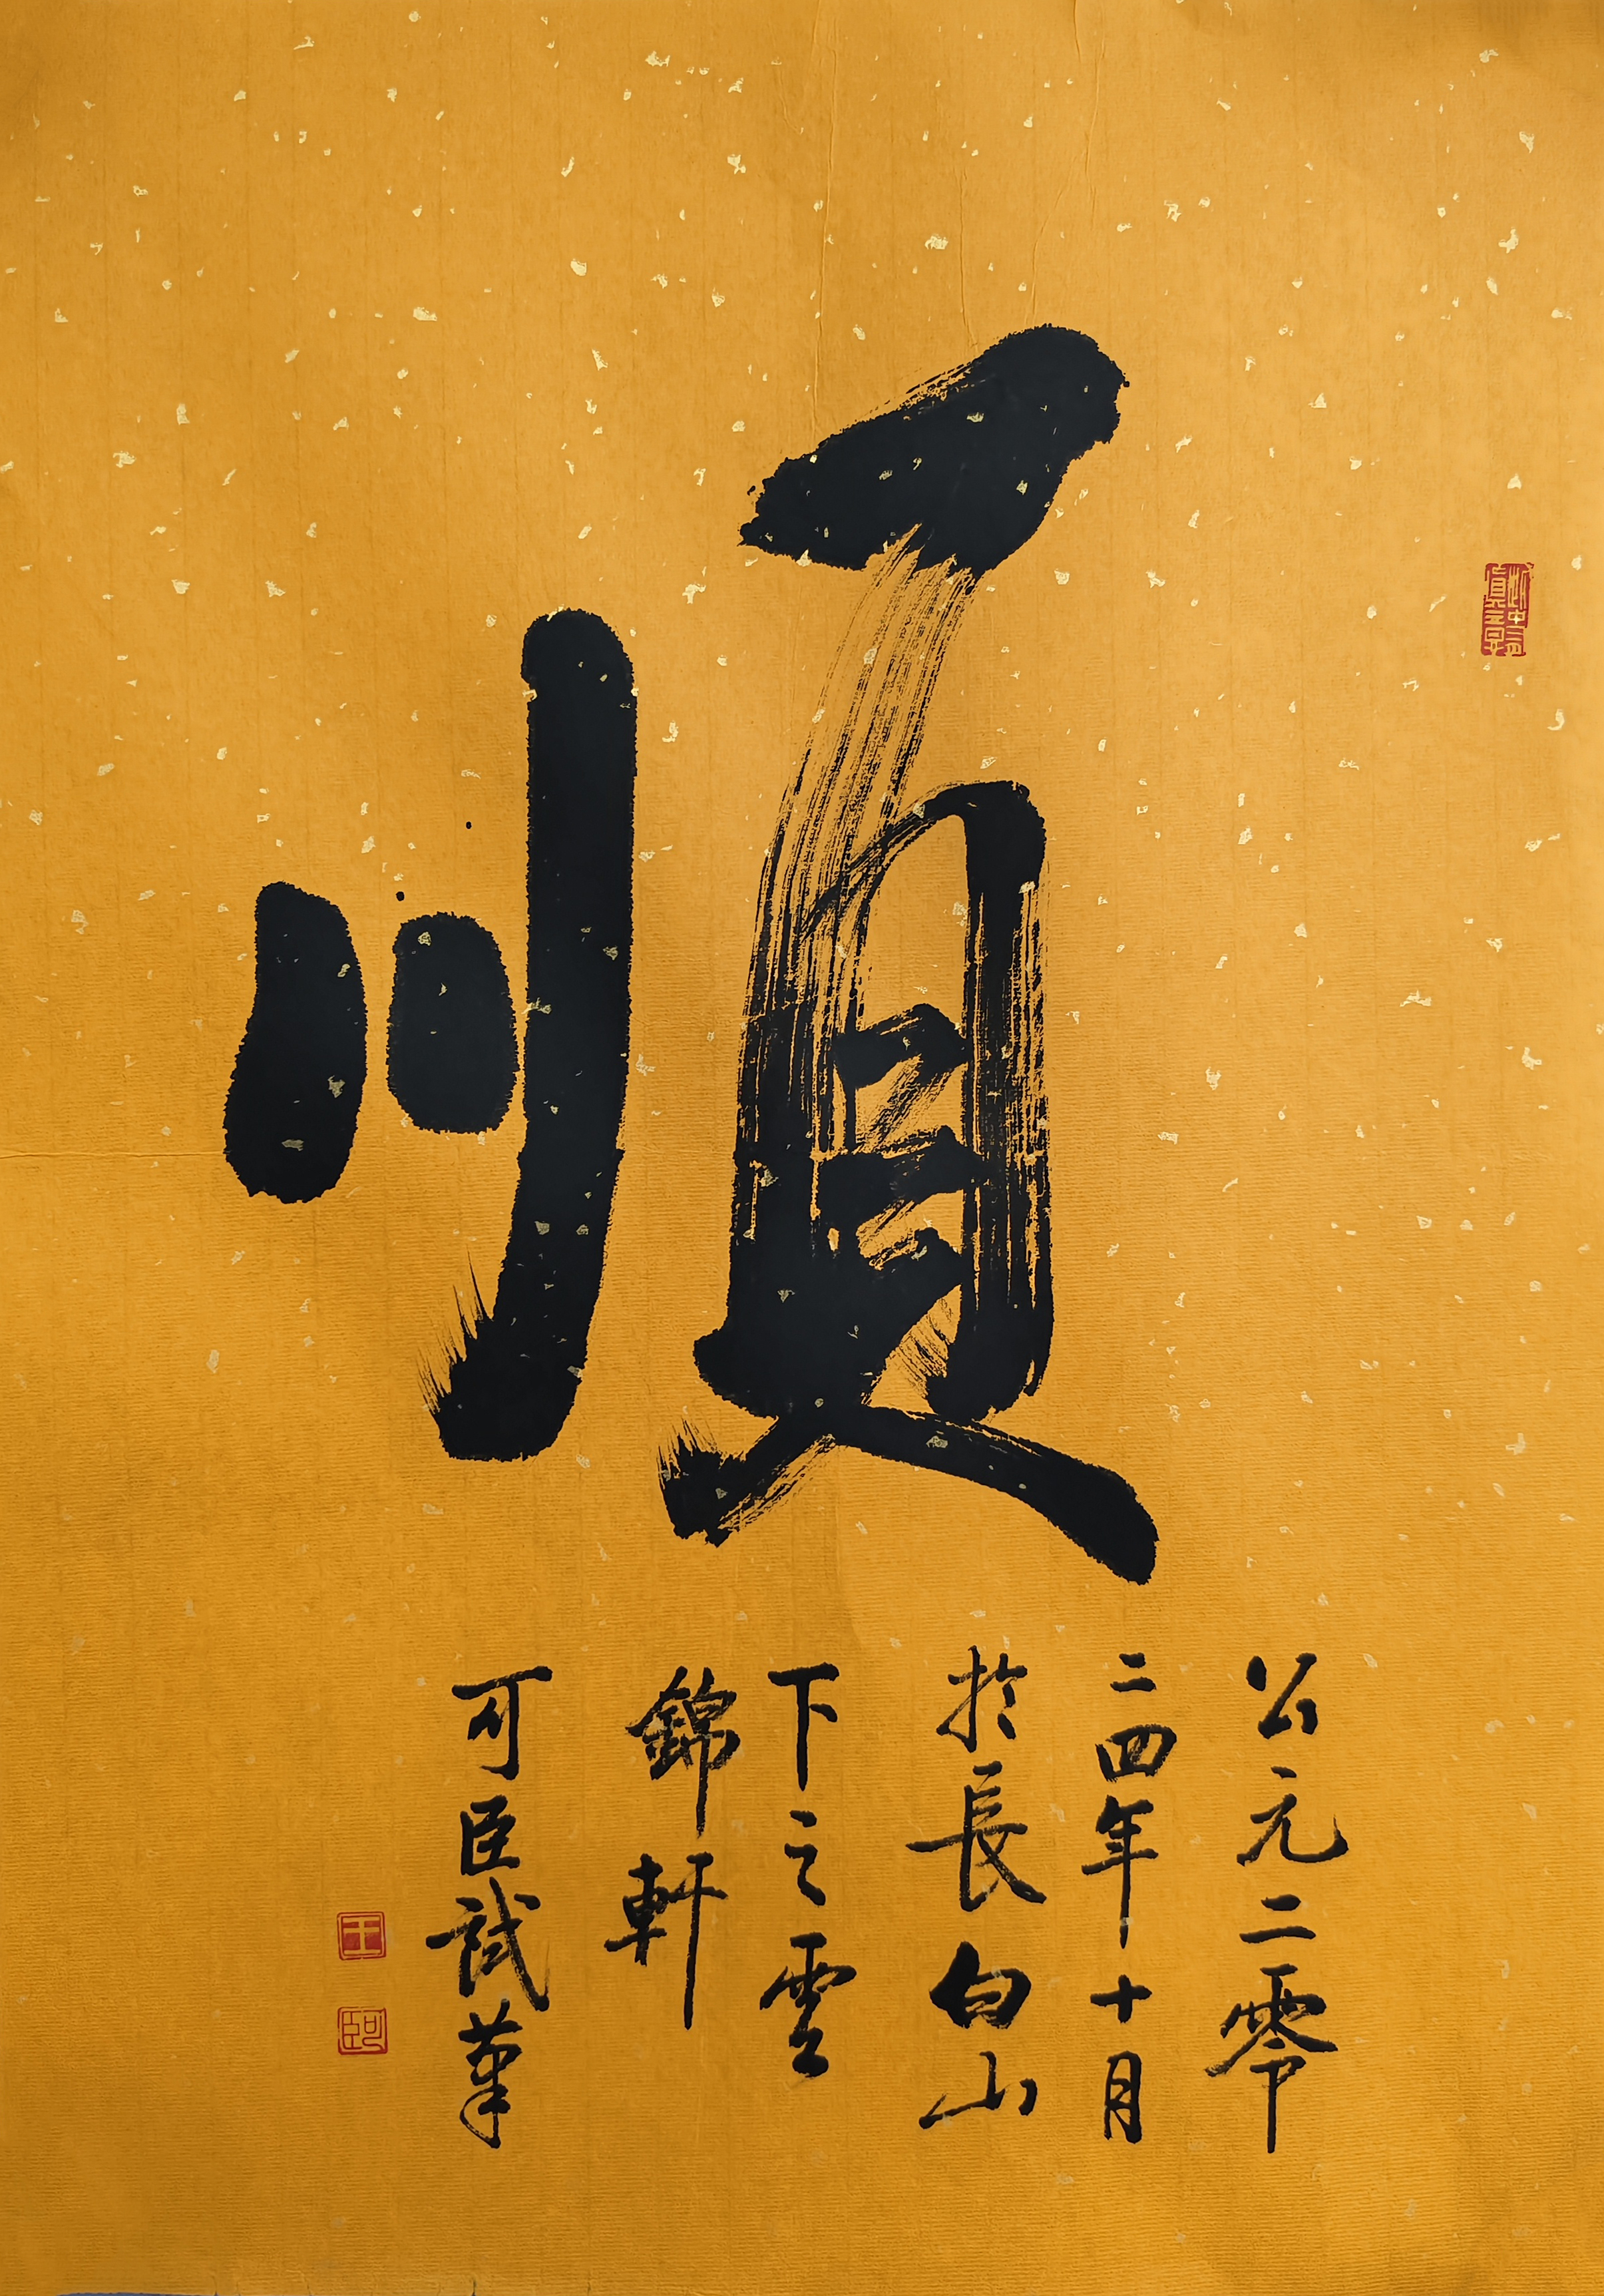 順
公元二零
二四年十月
於長白山
下之雲
錦軒
可臣試筆
王
可臣